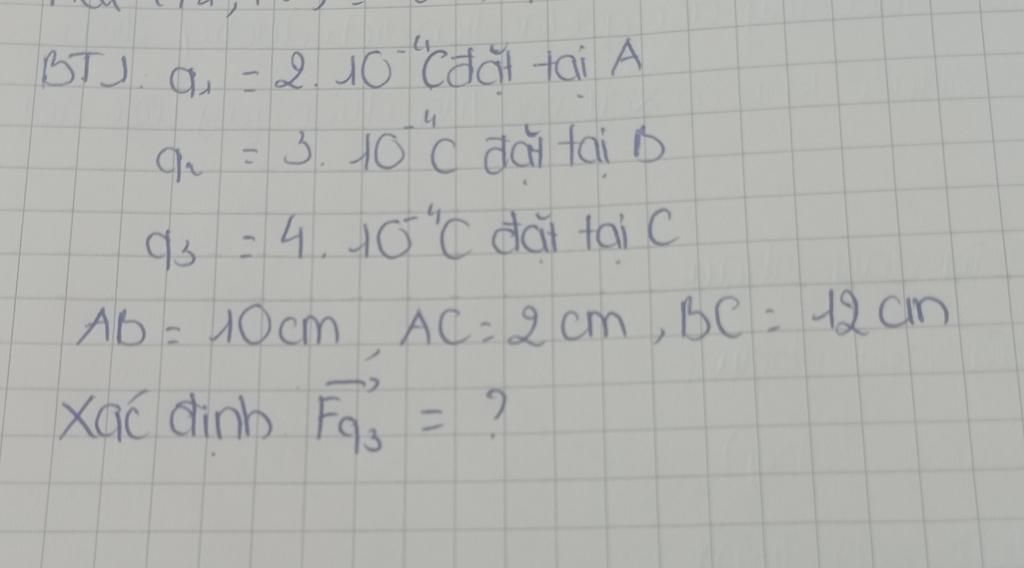 BT1. q₁ = 2. 10⁻⁴C đặt tại A
q₂ = 3. 10⁻⁴C đặt tại B
q₃ = 4. 10⁻⁴C đặt tại C
AB = 10cm, AC = 2cm, BC = 12cm
Xác định F⃗q₃ = ?